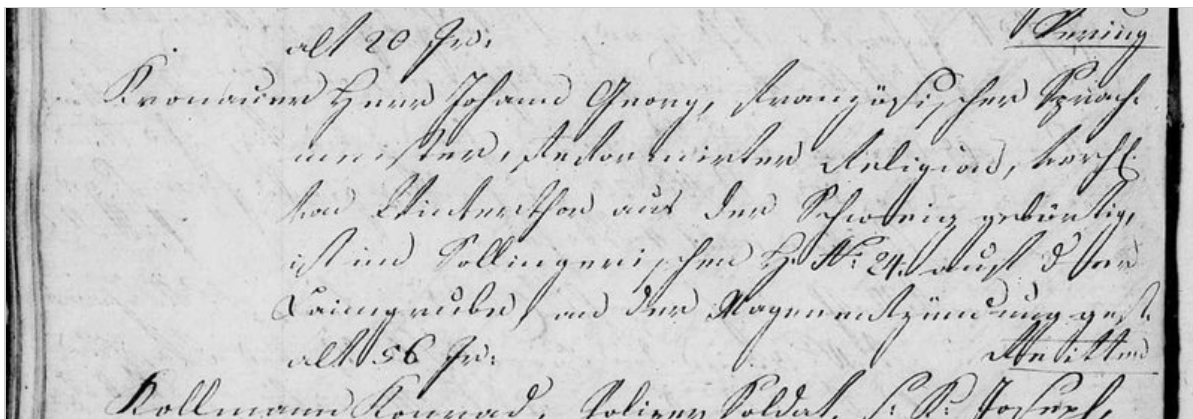 alt 20 Jr:
Kronauer Herr Johann Georg, französischer Sprach-
meister, Reformirter Religion, verh:
von Winterthor aus der Schweiz gebürtig,
ist im Sollingerischen H. Nr: 24. auf der
Laimgrube, an der Magenentzündung gest.
alt 56 Jr:
Kollmann Konrad, Polizey Soldat, Joseph